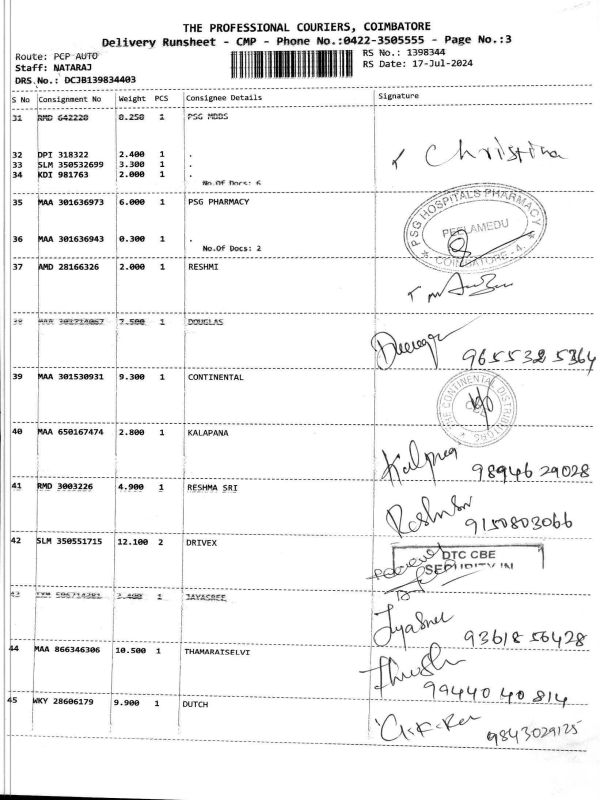 THE PROFESSIONAL COURIERS, COIMBATORE
Delivery Runsheet - CMP - Phone No.:0422-3505555 - Page No.:3
Route: PCP AUTO RS No.: 1398344
Staff: NATARAJ RS Date: 17-Jul-2024
DRS.No.: DCJB139834403
S No Consignment No Weight PCS Consignee Details Signature
31 RMD 642220 0.250 1 PSG MDBS
32 DPI 318322 2.400 1 .
33 SLM 350532699 3.300 1 .
34 KDI 981763 2.000 1 .
Christina
No.Of Docs: 6
35 MAA 301636973 6.000 1 PSG PHARMACY
PSG HOSPITALS PHARMACY
PEELAMEDU
COIMBATORE - 4.
36 MAA 301636943 0.300 1 .
No.Of Docs: 2
37 AMD 28166326 2.000 1 RESHMI
38 MAA 7.500 1 DOUGLAS
9655325364
39 MAA 301530931 9.300 1 CONTINENTAL
THE CONTINENTAL DISTRIBUTORS
40 MAA 650167474 2.800 1 KALAPANA
Kalpna 98946 29028
41 RMD 3003226 4.900 1 RESHMA SRI
9150803066
42 SLM 350551715 12.100 2 DRIVEX
DTC CBE
SECURITY IN
43 1 JAYASREE
Jyasree 93618 56428
44 MAA 866346306 10.500 1 THAMARAISELVI
99440 40 814
45 WKY 28606179 9.900 1 DUTCH
9843029125